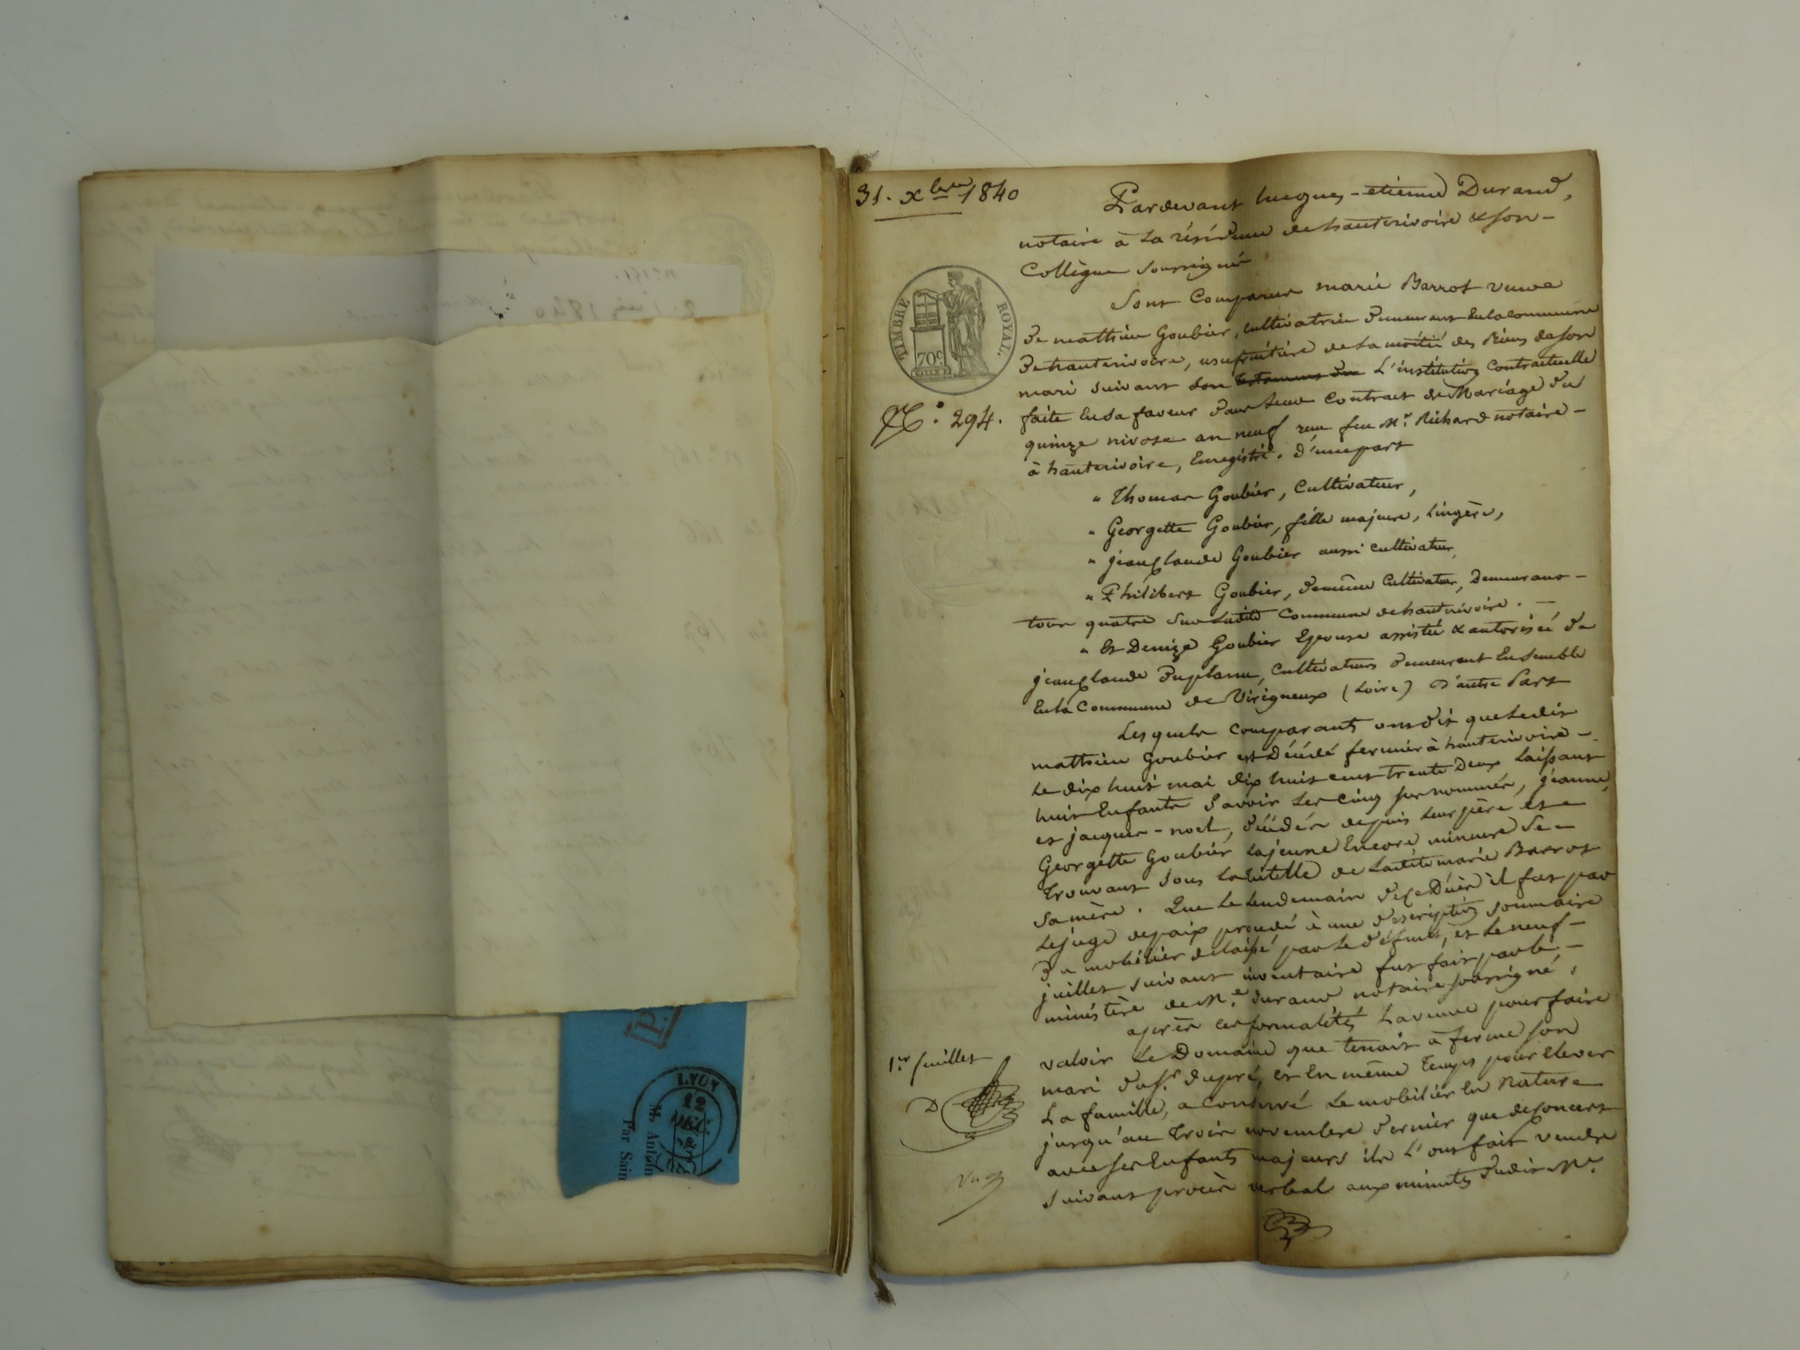 31. Xbre 1840
Pardevant hugues-etienne Durand,
notaire à la résidence de hauterivoire & son-
Collègue soussignés
Sont Comparus marie Barrot veuve
de mathieu Goubier, cultivatrice demeurant en la commune
de hauterivoire, usufruitière de la moitié des biens de son
mari suivant son L'institution Contractuelle
faite en sa faveur dans leur Contrat de Mariage du
quinze nivose an neuf reçu feu Mr. Richard notaire-
à hauterivoire, Enregistré. d'une part
" Thomas Goubier, Cultivateur,
" Georgette Goubier, fille majeure, Lingère,
" jeanclaude Goubier aussi cultivateur,
" Philibert Goubier, demême Cultivateur, Demeurans-
tous quatre sur Ladite Commune de hauterivoire. -
" Et Denize Goubier Epouse assistée & autorisée de
jeanclaude Duplanu, Cultivateurs demeurant Ensemble
En la Commune de Virigneux (Loire) D'autre Part
Lesquels comparants ont dit que Ledit
mathieu Goubier est Décédé fermier à hauterivoire -
Le dix huit mai dix huit cent trente Deux Laissant
huit Enfants Savoir Les Cinq sus nommés, jeanne,
et jacques-noel, décédés depuis leur père et
Georgette Goubier Lajeune Encore mineure Se-
trouvant Sous la tutelle de Ladite marie Barrot
Sa mère. Que Le Lendemain de ce Décès il fut par
Lejuge depaix procédé à une description sommaire
Du mobilier délaissé par Le défunt, et Le neuf-
juillet suivant inventaire fut fait par le-
ministère de Me. Durand notaire soussigné.
après ces formalités La veuve pour faire
valoir Le Domaine que tenait à ferme son
mari du Sr. dupré, et En même temps pour Elever
La famille, a Conservé Le mobilier En nature
jusqu'au trois novembre dernier que de Concert
avec ses Enfants majeurs ils L'ont fait vendre
Suivant procès verbal aux minutes dudit Me.
TIMBRE ROYAL.
70c
No. 294.
1er. feuillet
D
n° 151.
1840
LYON
12
DEC.
M. Antoin
Par Sain